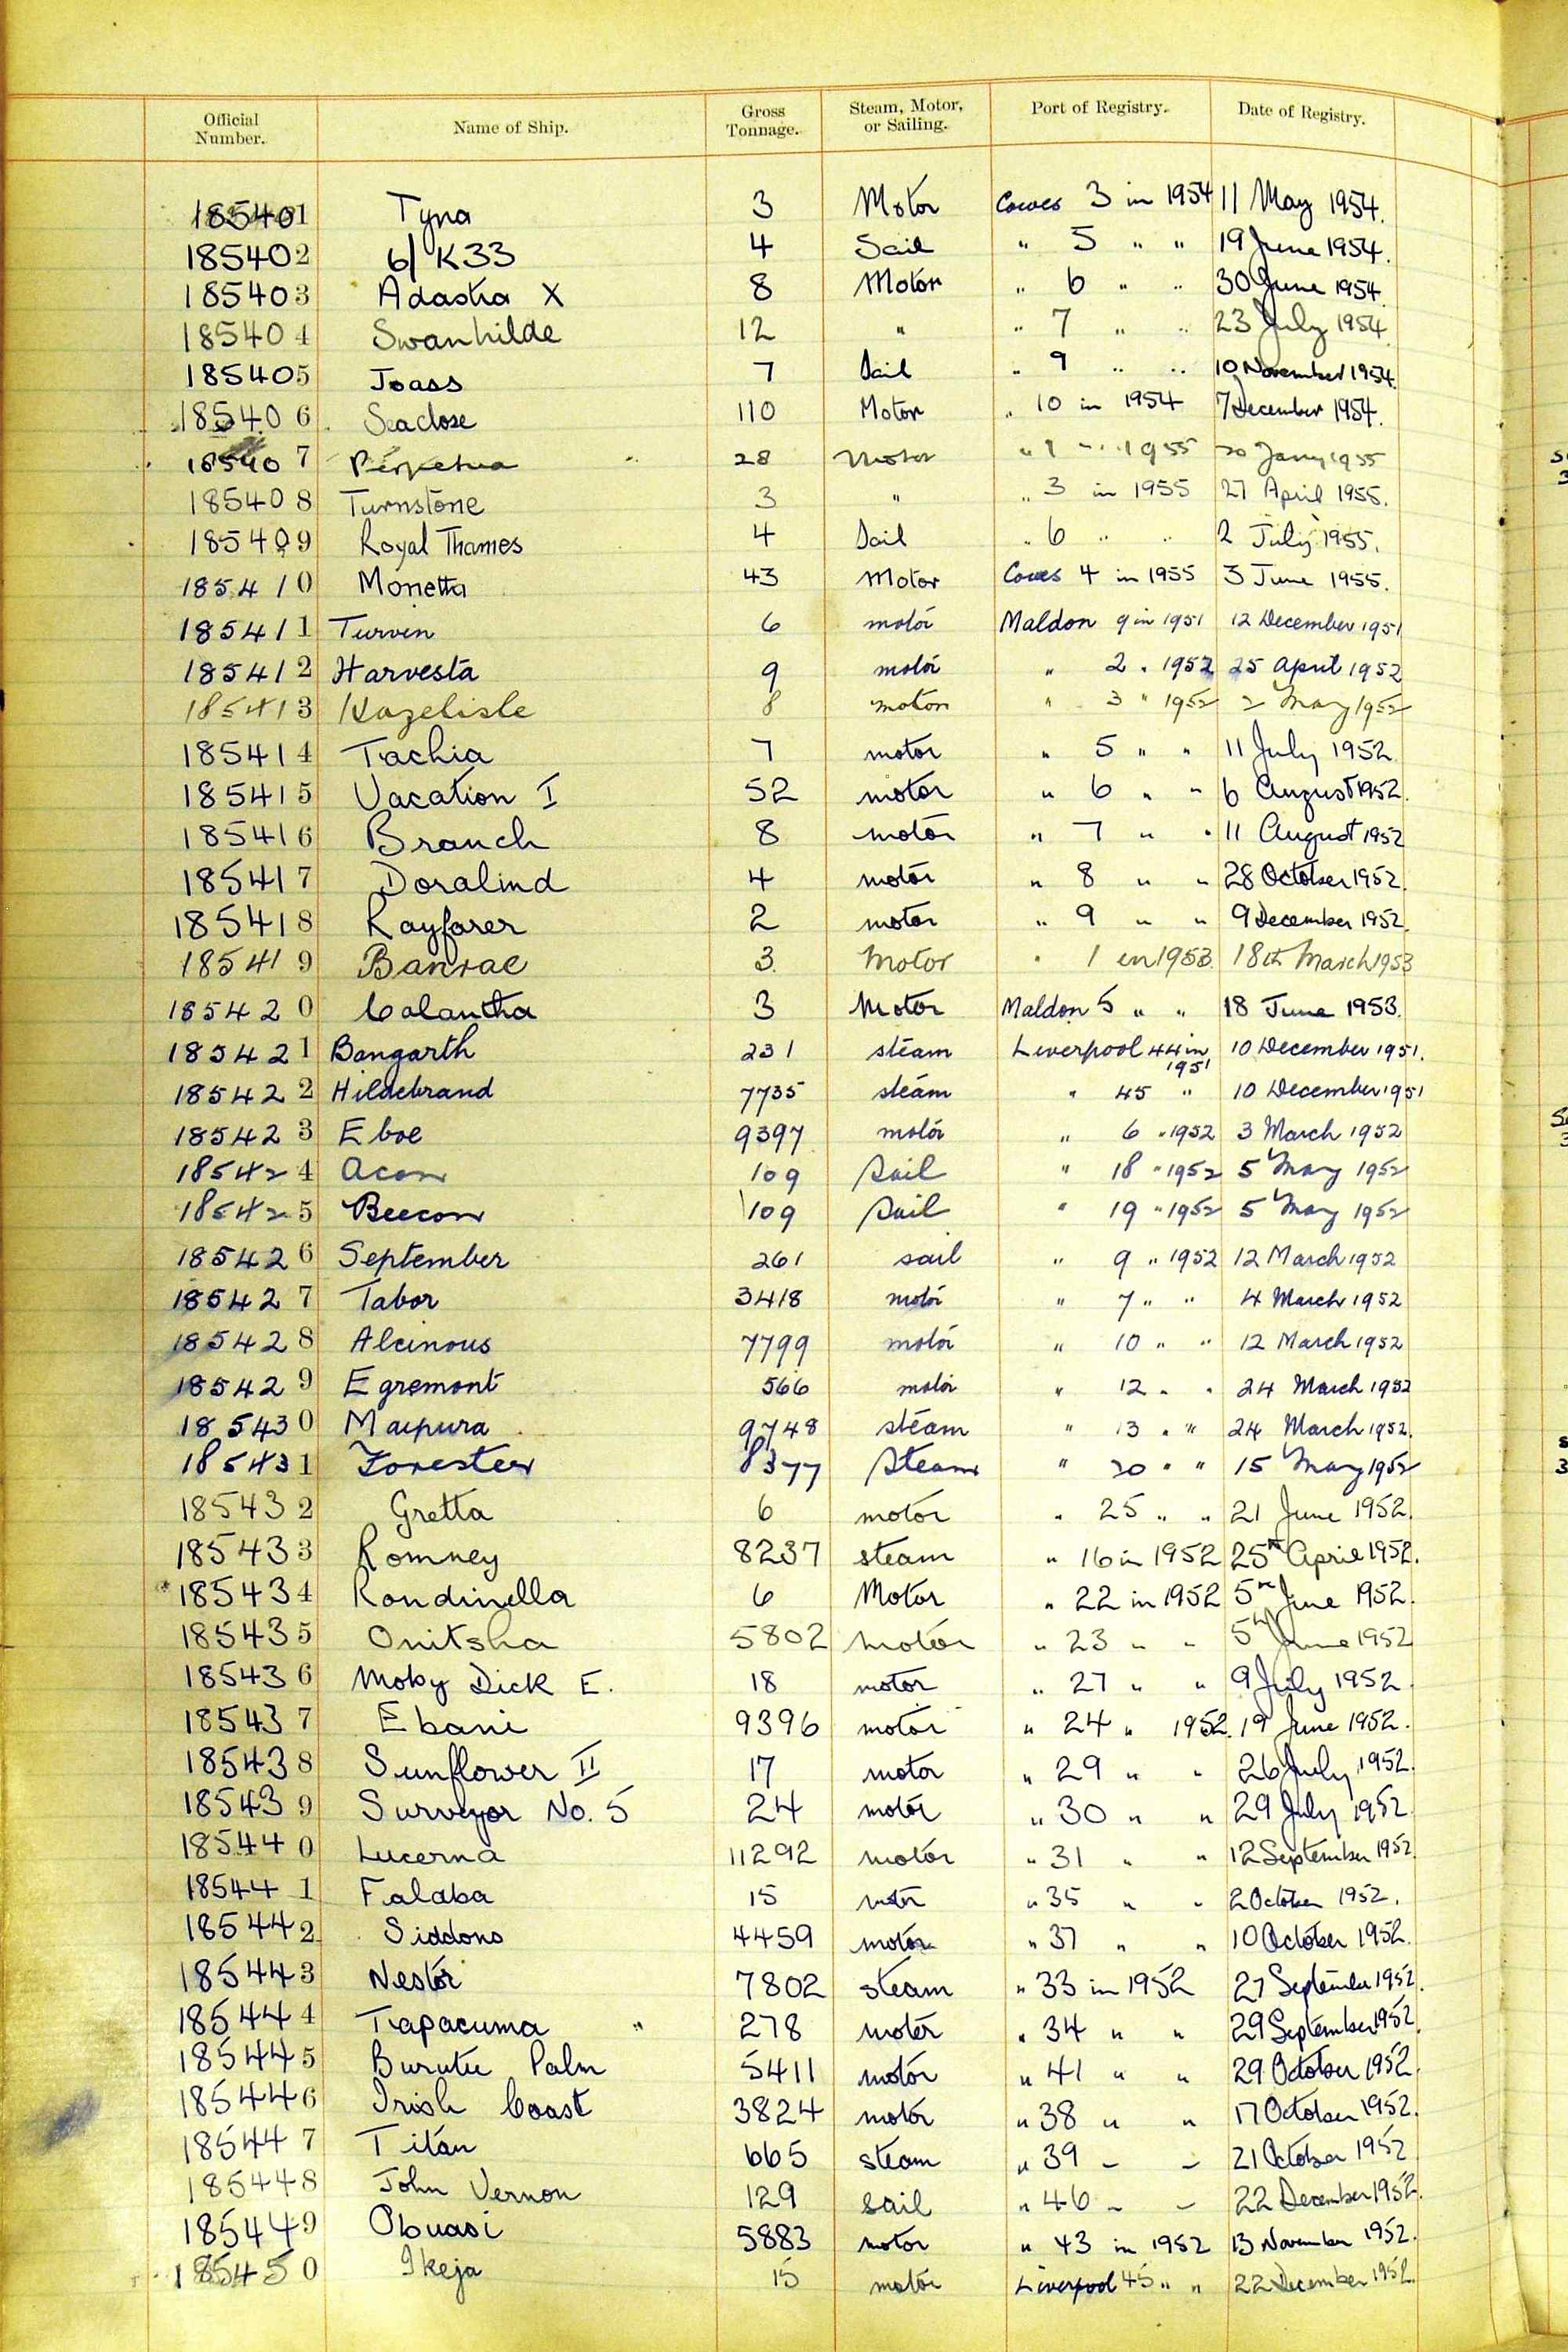 Official Number. Name of Ship. Gross Tonnage. Steam, Motor, or Sailing. Port of Registry. Date of Registry.
185401 Tyna 3 Motor Cowes 3 in 1954 11 May 1954.
185402 6/K33 4 Sail " 5 " " 19 June 1954.
185403 Adastra X 8 Motor " 6 " " 30 June 1954
185404 Swanhilde 12 " " 7 " " 23 July 1954
185405 Joass 7 Sail " 9 " " 10 November 1954
185406 Seaclose 110 Motor " 10 in 1954 7 December 1954.
185407 Perpetua 28 Motor " 1 " 1955 20 Jany 1955
185408 Turnstone 3 " " 3 in 1955 27 April 1955.
185409 Royal Thames 4 Sail " 6 " " 2 July 1955.
185410 Monetta 43 Motor Cowes 4 in 1955 3 June 1955.
185411 Turven 6 motor Maldon 9 in 1951 12 December 1951
185412 Harvesta 9 motor " 2 " 1952 25 April 1952
185413 Hazelisle 8 motor " 3 " 1952 2 May 1952
185414 Tachia 7 motor " 5 " " 11 July 1952
185415 Vacation I 52 motor " 6 " " 6 August 1952.
185416 Branch 8 motor " 7 " " 11 August 1952
185417 Doralind 4 motor " 8 " " 28 October 1952.
185418 Rayfarer 2 motor " 9 " " 9 December 1952.
185419 Banrae 3. Motor " 1 in 1953. 18th March 1953
185420 Calantha 3 Motor Maldon 5 " " 18 June 1953.
185421 Bangarth 231 steam Liverpool 44 in 1951 10 December 1951.
185422 Hildebrand 7735 steam " 45 " 10 December 1951
185423 Eboe 9397 motor " 6 " 1952 3 March 1952
185424 Acon 109 Sail " 18 " 1952 5 May 1952
185425 Beecon 109 Sail " 19 " 1952 5 May 1952
185426 September 261 sail " 9 " 1952 12 March 1952
185427 Tabor 3418 motor " 7 " " 4 March 1952
185428 Alcinous 7799 motor " 10 " " 12 March 1952
185429 Egremont 566 motor " 12 " " 24 March 1952
185430 Maipura 9748 steam " 13 " " 24 March 1952.
185431 Forester 8377 Steam " 20 " " 15 May 1952
185432 Gretta 6 motor " 25 " " 21 June 1952.
185433 Romney 8237 steam " 16 in 1952 25th April 1952.
185434 Rondinella 6 Motor " 22 in 1952 5th June 1952.
185435 Onitsha 5802 Motor " 23 " " 5th June 1952
185436 Moby Dick E. 18 motor " 27 " " 9 July 1952
185437 Ebani 9396 motor " 24 " 1952. 19 June 1952.
185438 Sunflower II 17 motor " 29 " " 26 July 1952.
185439 Surveyor No. 5 24 motor " 30 " " 29 July 1952
185440 Lucerna 11292 motor " 31 " " 12 September 1952
185441 Falaba 15 motor " 35 " " 2 October 1952.
185442 Siddons 4459 motor " 37 " " 10 October 1952.
185443 Nestor 7802 steam " 33 in 1952 27 September 1952.
185444 Tapacuma " 278 motor " 34 " " 29 September 1952.
185445 Burutu Palm 5411 motor " 41 " " 29 October 1952.
185446 Irish Coast 3824 motor " 38 " " 17 October 1952.
185447 Titan 665 steam " 39 " " 21 October 1952
185448 John Vernon 129 sail " 46 " " 22 December 1952.
185449 Obuasi 5883 motor " 43 in 1952 13 November 1952.
185450 Ikeja 15 motor Liverpool 45 " " 22 December 1952.